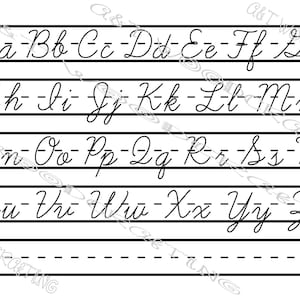 a Bb Cc Dd Ee Ff G
h Ii Jj Kk Ll M
n Oo Pp Qq Rr Ss
u Vv Ww Xx Yy